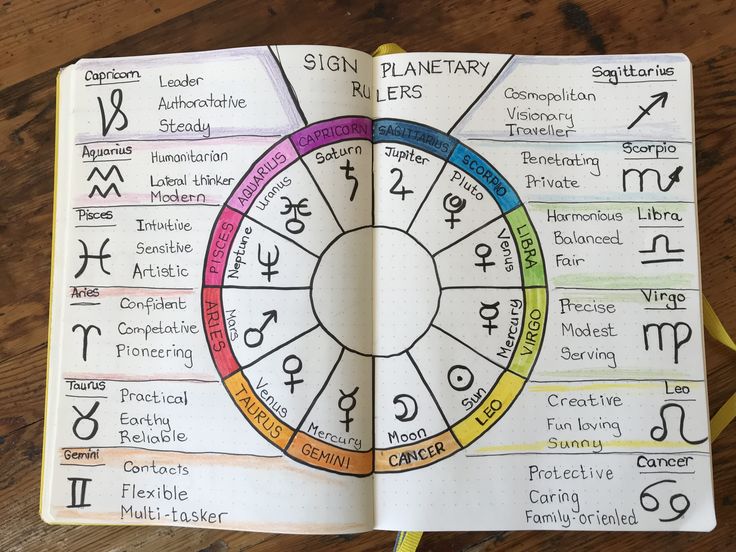 SIGN PLANETARY
RULERS
Capricorn
Leader
Authoratative
Steady
Aquarius
Humanitarian
Lateral thinker
Modern
Pisces
Intuitive
Sensitive
Artistic
Aries
Confident
Competative
Pioneering
Taurus
Practical
Earthy
Reliable
Gemini
Contacts
Flexible
Multi-tasker
CAPRICORN
Saturn
AQUARIUS
Uranus
PISCES
Neptune
ARIES
Mars
TAURUS
Venus
GEMINI
Mercury
SAGITTARIUS
Jupiter
SCORPIO
Pluto
LIBRA
Venus
VIRGO
Mercury
LEO
Sun
CANCER
Moon
Sagittarius
Cosmopolitan
Visionary
Traveller
Scorpio
Penetrating
Private
Libra
Harmonious
Balanced
Fair
Virgo
Precise
Modest
Serving
Leo
Creative
Fun loving
Sunny
Cancer
Protective
Caring
Family-oriented